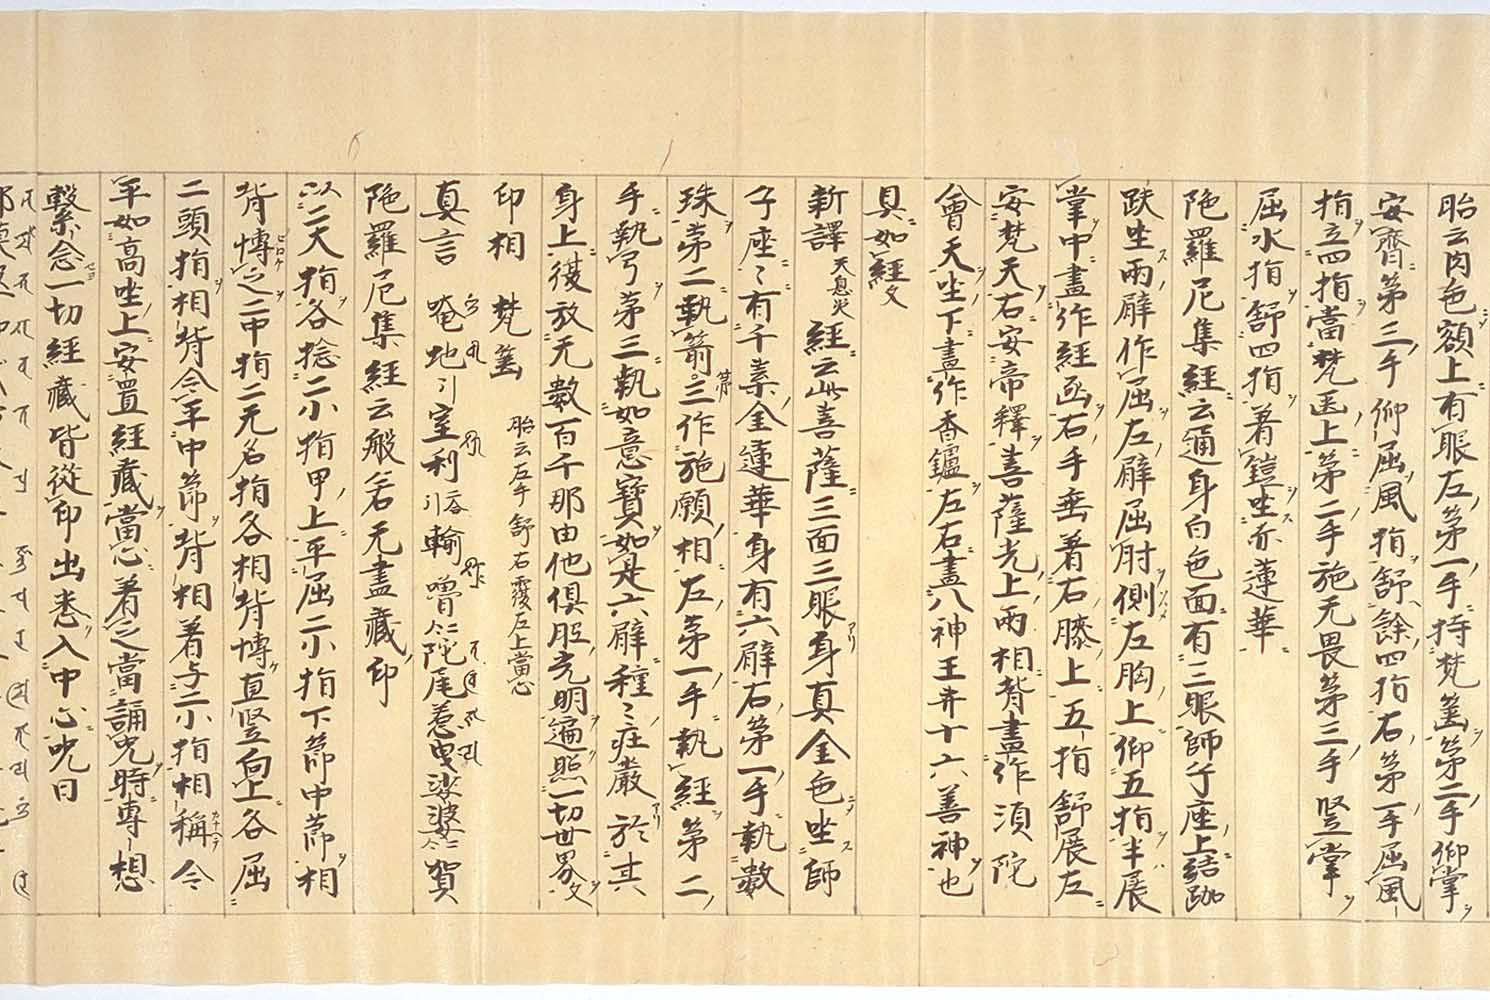 胎云肉色額上有眼左第一手持梵篋第二手仰掌
安齊第三手仰屈風指舒餘四指右第一手屈風
指立四指當梵篋上第二手施无畏第三手竪掌
屈水指舒四指着鎧坐赤蓮華
陁羅尼集經云通身白色面有三眼師子座上結跏
趺坐兩臂作屈左臂屈肘側左胸上仰五指半展
掌中畫作經函右手垂着右膝上五指舒展左
安梵天右安帝釋菩薩光上兩相背畫作須陀
會天坐下畫作香鑪左右畫八神王并十六善神也
具如經文
新譯天息災經云此菩薩三面三眼身真金色坐師
子座〻有千葉金蓮華身有六臂右第一手執數
珠第二執箭第三作施願相左第一手執經第二
手執弓第三執如意寶如是六臂種〻莊嚴於其
身上復放无數百千那由他俱胝光明遍照一切世界文
印相 梵篋 胎云左手舒右覆左上當心
真言 唵地引室利引輸嚕合二陀尾惹曳娑婆合二賀
陁羅尼集經云般若无盡藏印
以二大指各捻二小指甲上平屈二小指下節中節相
背博之二中指二无名指各相背博直竪向上各屈
二頭指相背令平中節背相着与二小指相稱令
平如高坐上安置經藏當心着之當誦呪時專想
繫念一切經藏皆從印出悉入中心呪曰